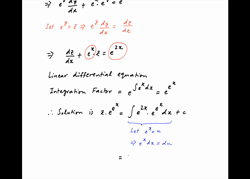 ⇒ e^y dy/dx + e^x · e^y = e^{2x}
Let e^y = z ⇒ e^y dy/dx = dz/dx
⇒ dz/dx + e^x · z = e^{2x}
Linear differential equation
Integration Factor = e^{∫e^x dx} = e^{e^x}
∴ Solution is z.e^{e^x} = ∫e^{2x} · e^{e^x} dx + c
Let e^x = u
⇒ e^x dx = du
=